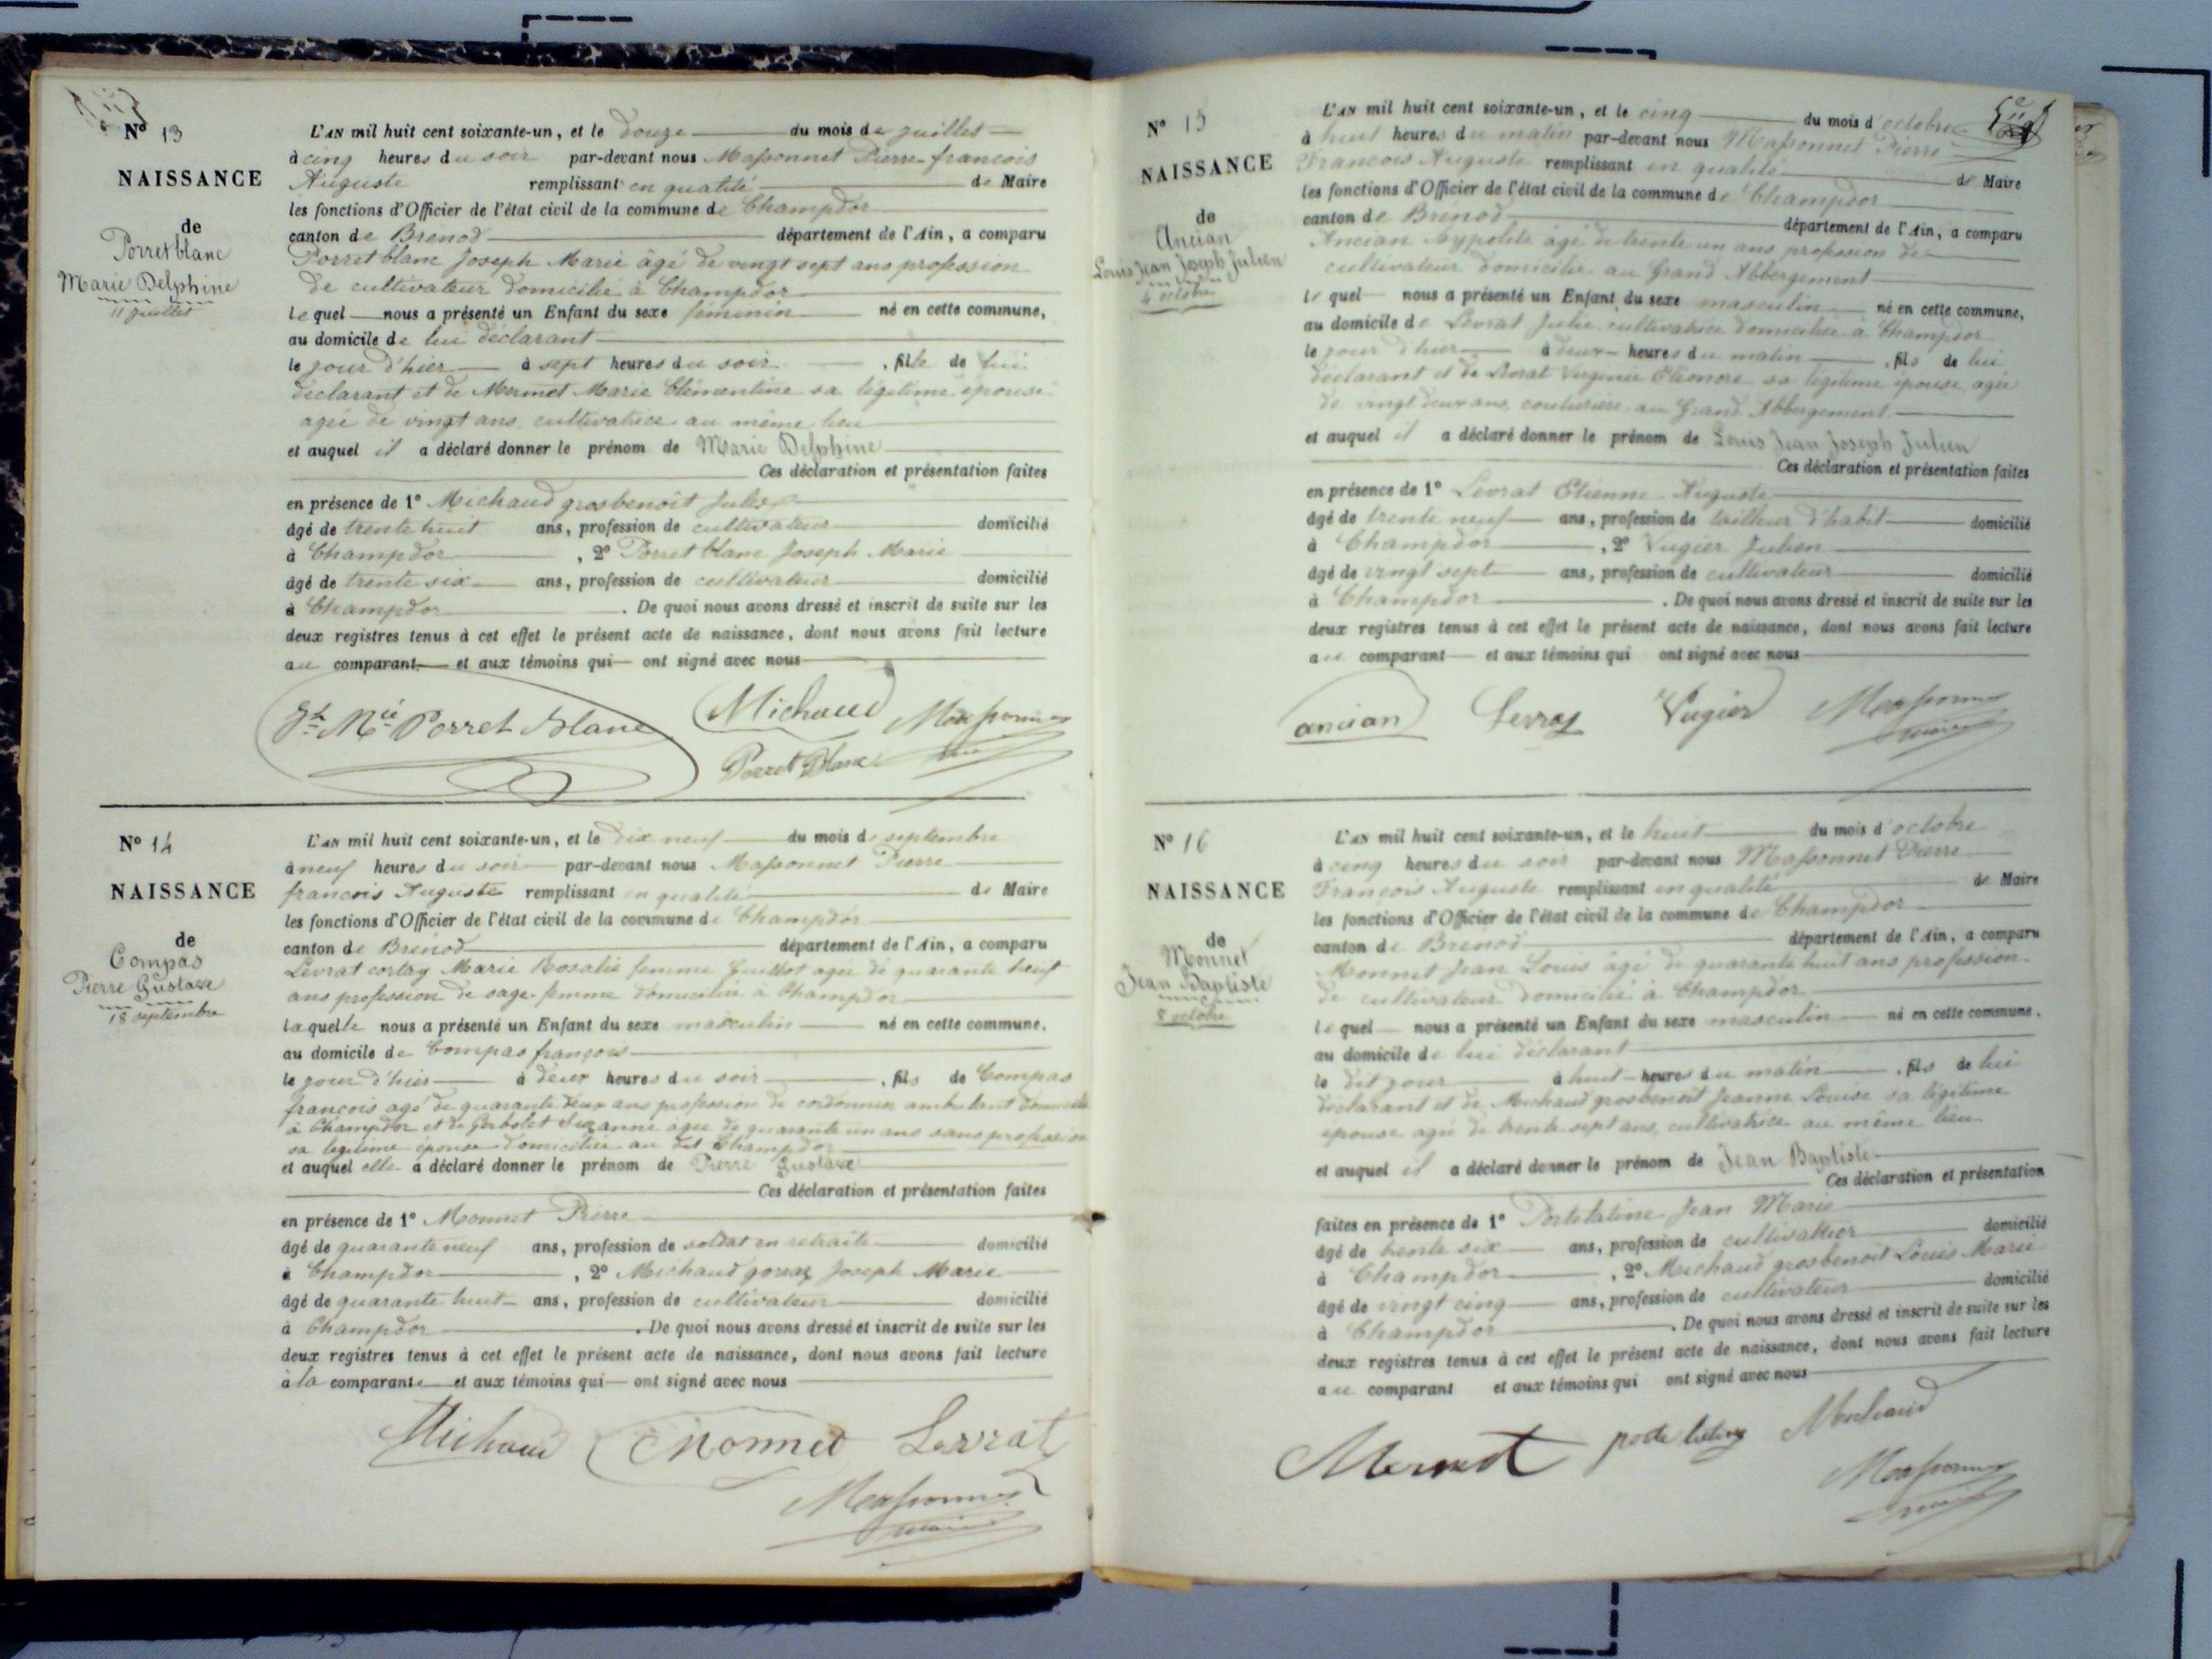 Nº 13
NAISSANCE
de
Porretblanc
Marie Delphine
11 juillet
L'AN mil huit cent soixante-un, et le douze du mois de juillet
à cinq heures du soir par-devant nous Massonnet Pierre françois
Auguste remplissant en qualité de Maire
les fonctions d'Officier de l'état civil de la commune de Champdor
canton de Brenod département de l'Ain, a comparu
Porretblanc Joseph Marie âgé de vingt sept ans profession
de cultivateur domicilié à Champdor
lequel nous a présenté un Enfant du sexe féminin né en cette commune,
au domicile de lui déclarant
le jour d'hier à sept heures du soir, fille de lui
déclarant et de Mermet Marie Clémentine sa légitime épouse
agée de vingt ans, cultivatrice au même lieu
et auquel il a déclaré donner le prénom de Marie Delphine
Ces déclaration et présentation faites
en présence de 1º Michaud grosbenoit Jules
âgé de trente huit ans, profession de cultivateur domicilié
à Champdor, 2º Porret blanc Joseph Marie
âgé de trente six ans, profession de cultivateur domicilié
à Champdor. De quoi nous avons dressé et inscrit de suite sur les
deux registres tenus à cet effet le présent acte de naissance, dont nous avons fait lecture
au comparant et aux témoins qui ont signé avec nous
Jh Mie Porret Blanc Michaud Massonnet
Porret Blanc maire
Nº 14
NAISSANCE
de
Compas
Pierre Gustave
18 septembre
L'AN mil huit cent soixante-un, et le dix neuf du mois de septembre
à neuf heures du soir par-devant nous Massonnet Pierre
françois Auguste remplissant en qualité de Maire
les fonctions d'Officier de l'état civil de la commune de Champdor
canton de Brénod département de l'Ain, a comparu
Levrat cortay Marie Rosalie femme Guillot agée de quarante neuf
ans profession de sage-femme domiciliée à Champdor
laquelle nous a présenté un Enfant du sexe masculin né en cette commune,
au domicile de Compas françois
le jour d'hier à deux heures du soir, fils de Compas
françois agé de quarante deux ans profession de cordonnier ambulant domicilié
à Champdor et de Gerbolet Suzanne agée de quarante un ans sans profession
sa légitime épouse domiciliée au dit Champdor
et auquel elle a déclaré donner le prénom de Pierre Gustave
Ces déclaration et présentation faites
en présence de 1º Monnet Pierre
âgé de quarante neuf ans, profession de soldat en retraite domicilié
à Champdor, 2º Michaud goiraz Joseph Marie
âgé de quarante huit ans, profession de cultivateur domicilié
à Champdor. De quoi nous avons dressé et inscrit de suite sur les
deux registres tenus à cet effet le présent acte de naissance, dont nous avons fait lecture
à la comparante et aux témoins qui ont signé avec nous
Michaud Monnet Levrat
Massonnet
maire
Nº 15
NAISSANCE
de
Ancian
Louis Jean Joseph Julien
4 octobre
L'AN mil huit cent soixante-un, et le cinq du mois d'octobre
à huit heures du matin par-devant nous Massonnet Pierre
François Auguste remplissant en qualité de Maire
les fonctions d'Officier de l'état civil de la commune de Champdor
canton de Brénod département de l'Ain, a comparu
Ancian hypolite âgé de trente un ans profession de
cultivateur domicilié au Grand Abbergement
lequel nous a présenté un Enfant du sexe masculin né en cette commune,
au domicile de Levrat Julie cultivatrice domiciliée à Champdor
le jour d'hier à deux heures du matin, fils de lui
déclarant et de Levrat Virginie Eléonore sa légitime épouse agée
de vingt deux ans, couturière au Grand Abbergement
et auquel il a déclaré donner le prénom de Louis Jean Joseph Julien
Ces déclaration et présentation faites
en présence de 1º Levrat Etienne Auguste
âgé de trente neuf ans, profession de tailleur d'habit domicilié
à Champdor, 2º Vugier Julien
âgé de vingt sept ans, profession de cultivateur domicilié
à Champdor. De quoi nous avons dressé et inscrit de suite sur les
deux registres tenus à cet effet le présent acte de naissance, dont nous avons fait lecture
au comparant et aux témoins qui ont signé avec nous
ancian Levrat Vugier Massonnet
maire
Nº 16
NAISSANCE
de
Monnet
Jean Baptiste
8 octobre
L'AN mil huit cent soixante-un, et le huit du mois d'octobre
à cinq heures du soir par-devant nous Massonnet Pierre
François Auguste remplissant en qualité de Maire
les fonctions d'Officier de l'état civil de la commune de Champdor
canton de Brénod département de l'Ain, a comparu
Monnet Jean Louis âgé de quarante huit ans profession
de cultivateur domicilié à Champdor
lequel nous a présenté un Enfant du sexe masculin né en cette commune,
au domicile de lui déclarant
le dit jour à huit heures du matin, fils de lui
déclarant et de Michaud grosbenoit Jeanne Louise sa légitime
épouse agée de trente sept ans, cultivatrice au même lieu
et auquel il a déclaré donner le prénom de Jean Baptiste
Ces déclaration et présentation
faites en présence de 1º Portelatine Jean Marie
âgé de trente six ans, profession de cultivateur domicilié
à Champdor, 2º Michaud grosbenoit Louis Marie
âgé de vingt cinq ans, profession de cultivateur domicilié
à Champdor. De quoi nous avons dressé et inscrit de suite sur les
deux registres tenus à cet effet le présent acte de naissance, dont nous avons fait lecture
au comparant et aux témoins qui ont signé avec nous
Michaud
Massonnet
maire